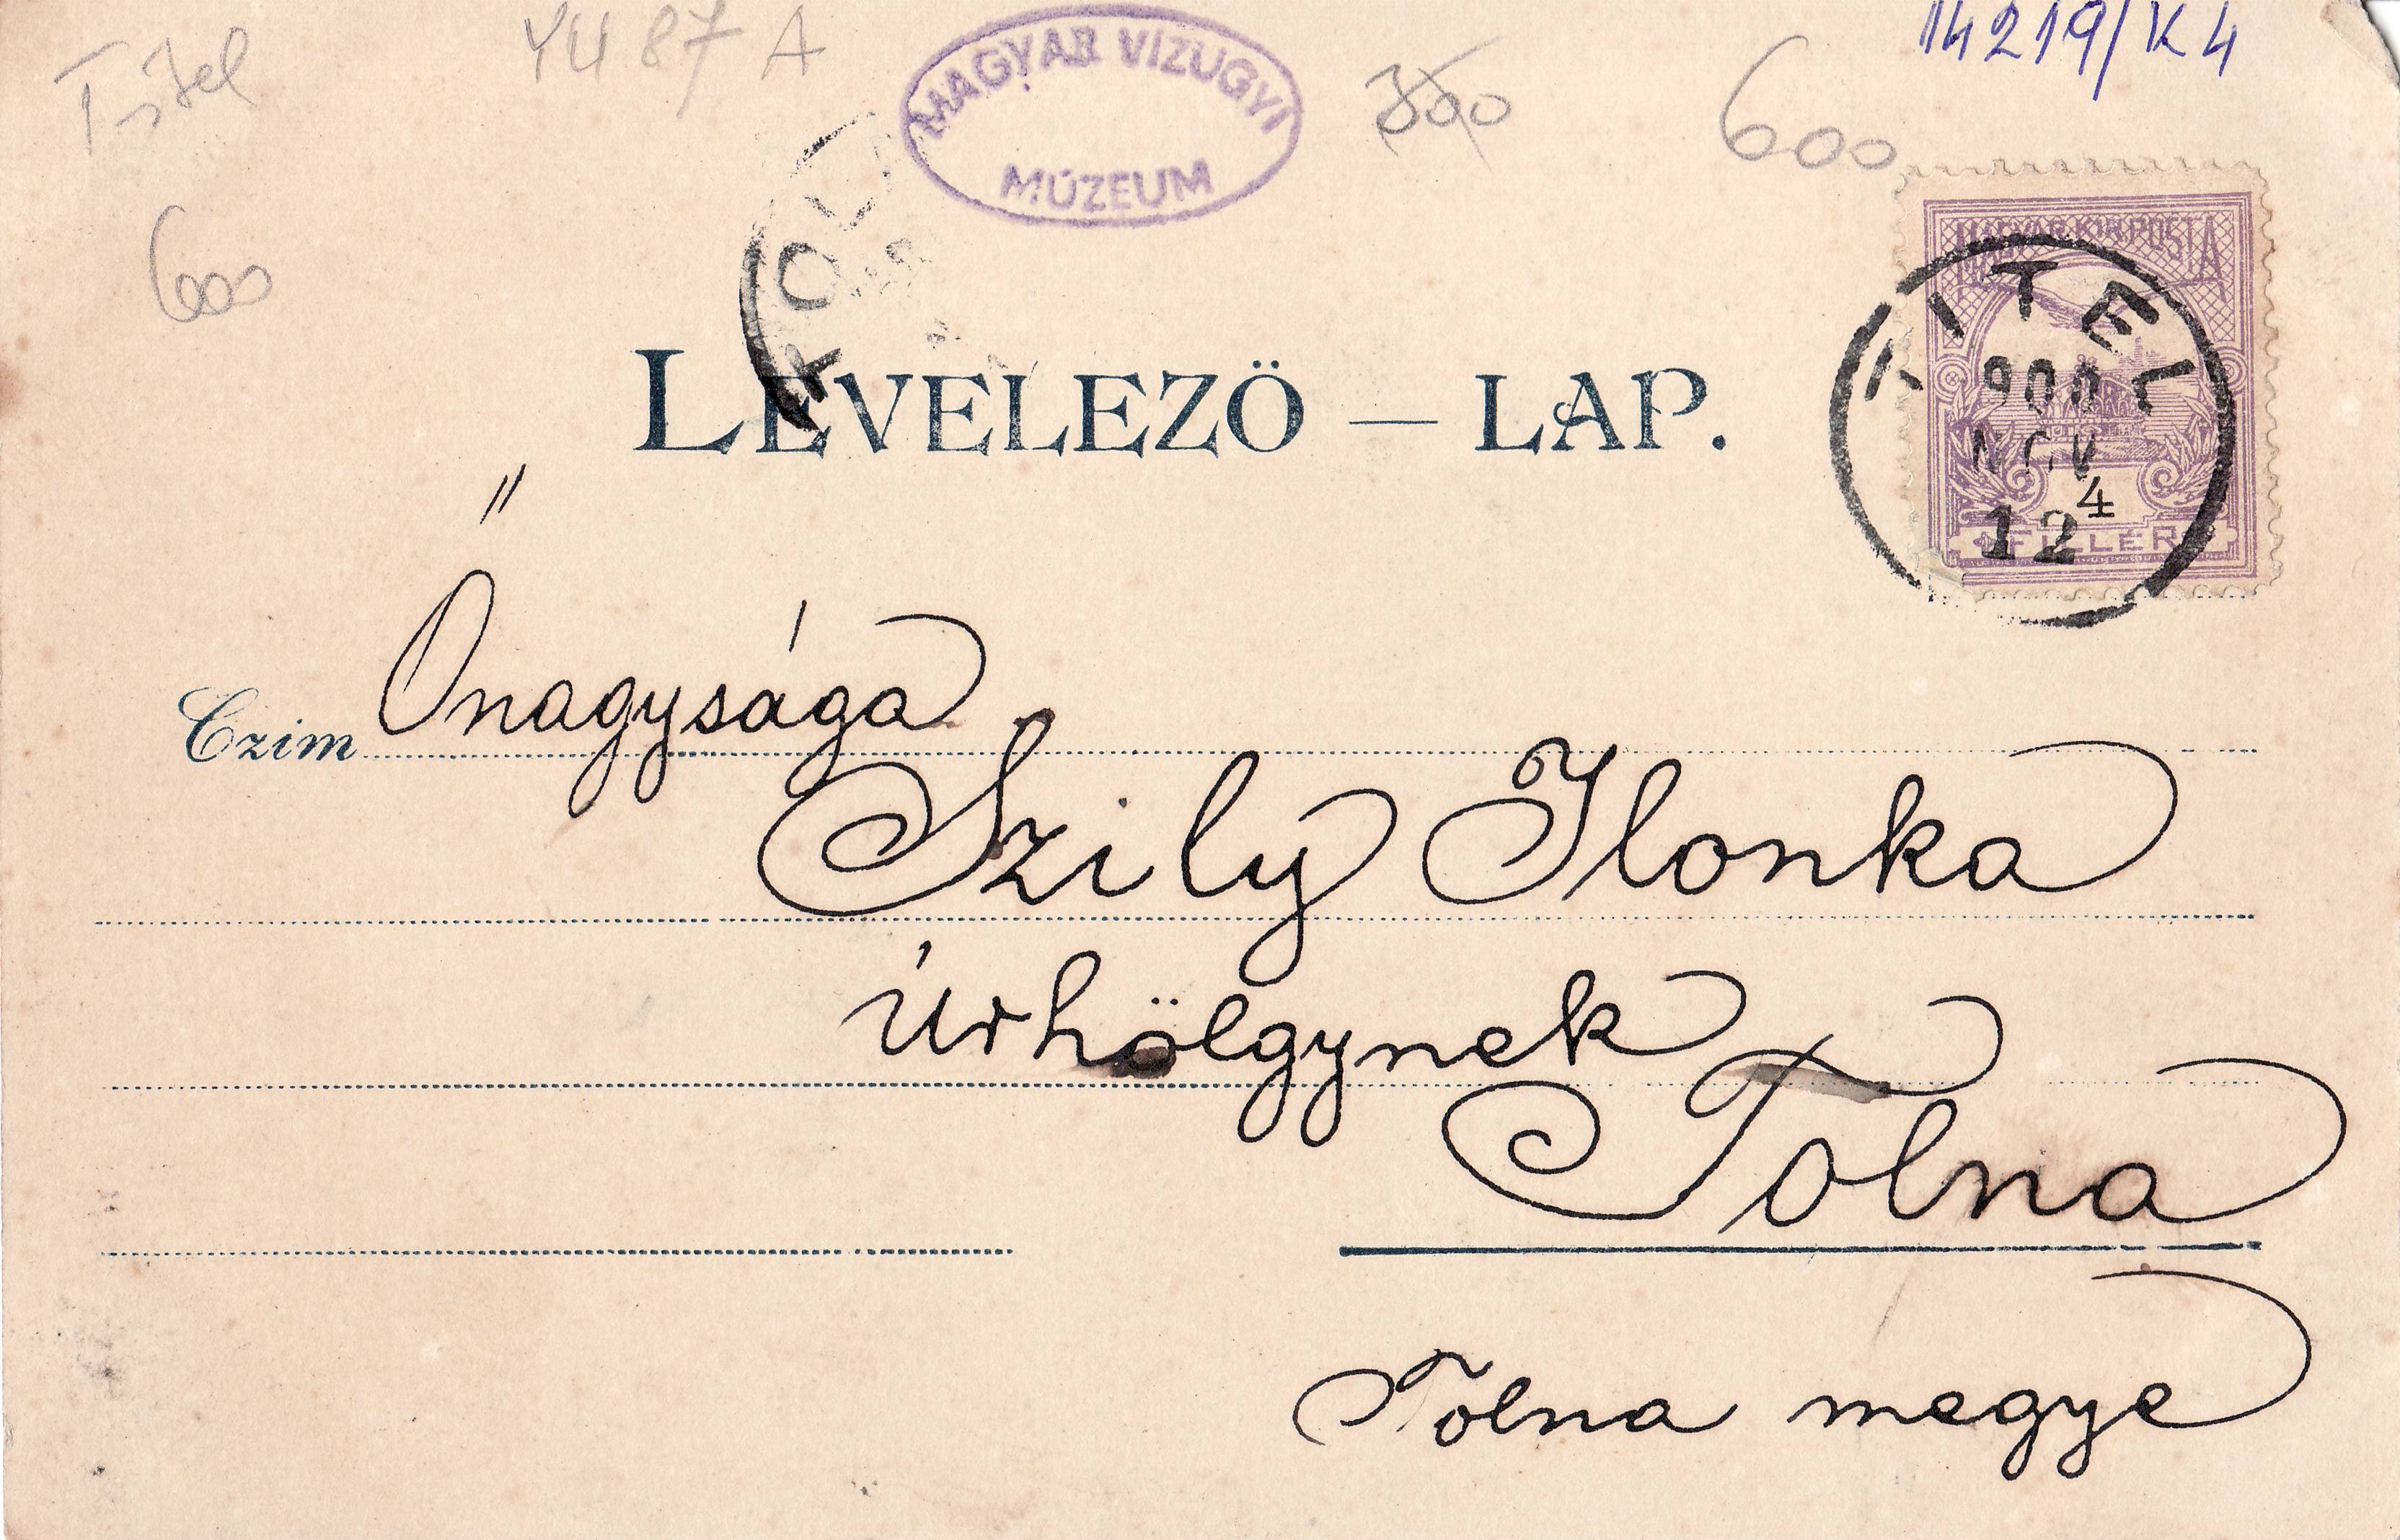 14219/K4
Titel
YU 87 A
MAGYAR VÍZÜGYI
MÚZEUM
600
600
MAGYAR KIR. POSTA
TITEL
900
NOV
4
12
FILLÉR
TOL
LEVELEZÖ — LAP.
Czim Őnagysága
Szily Ilonka
úrhölgynek
Tolna
Tolna megye